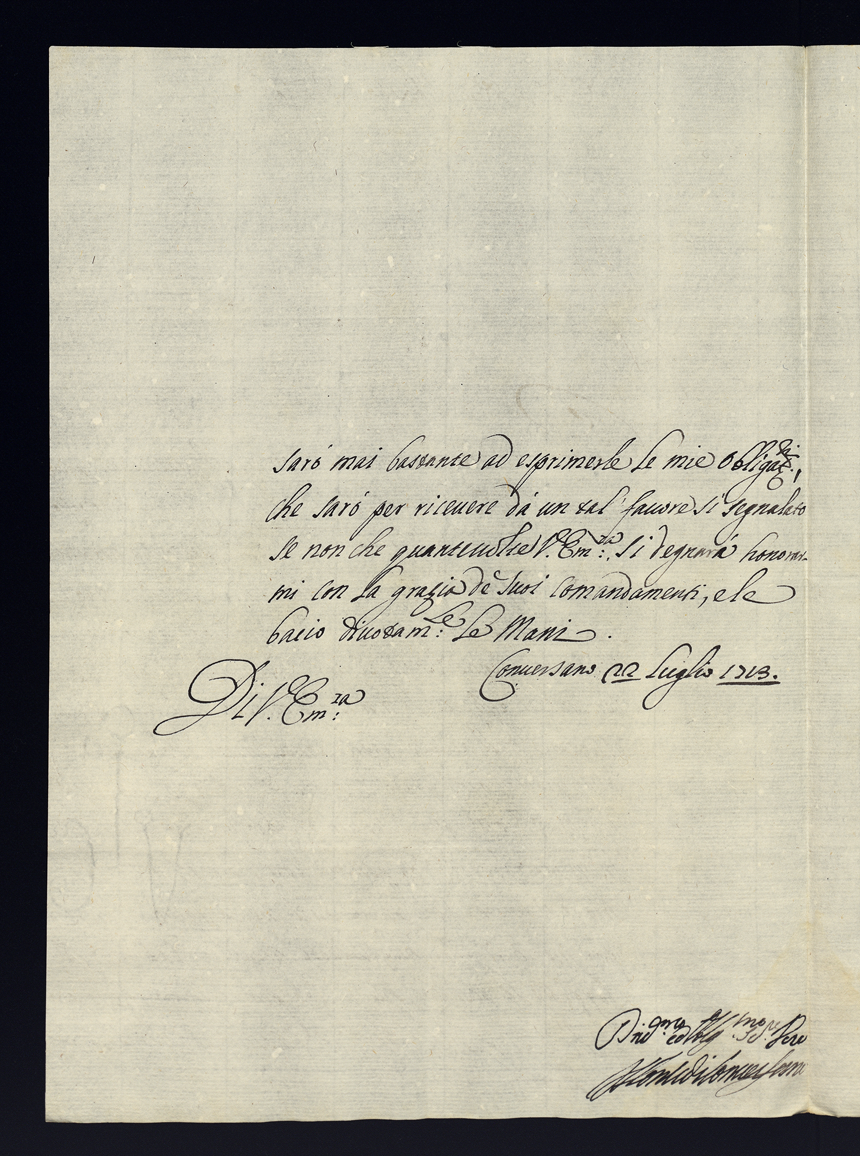 sarò mai bastante ad esprimerle le mie obligat.ni,
che sarò per ricevere dà un tal' favore sì segnalato
se non che quantevolte V. Em.za si degnarà honorar-
mi con la grazia dè suoi comandamenti, e le
bacio divotam.te le Mani.
Conversano 22 luglio 1713.
Di V. Em.za
Il Conte di Conversano